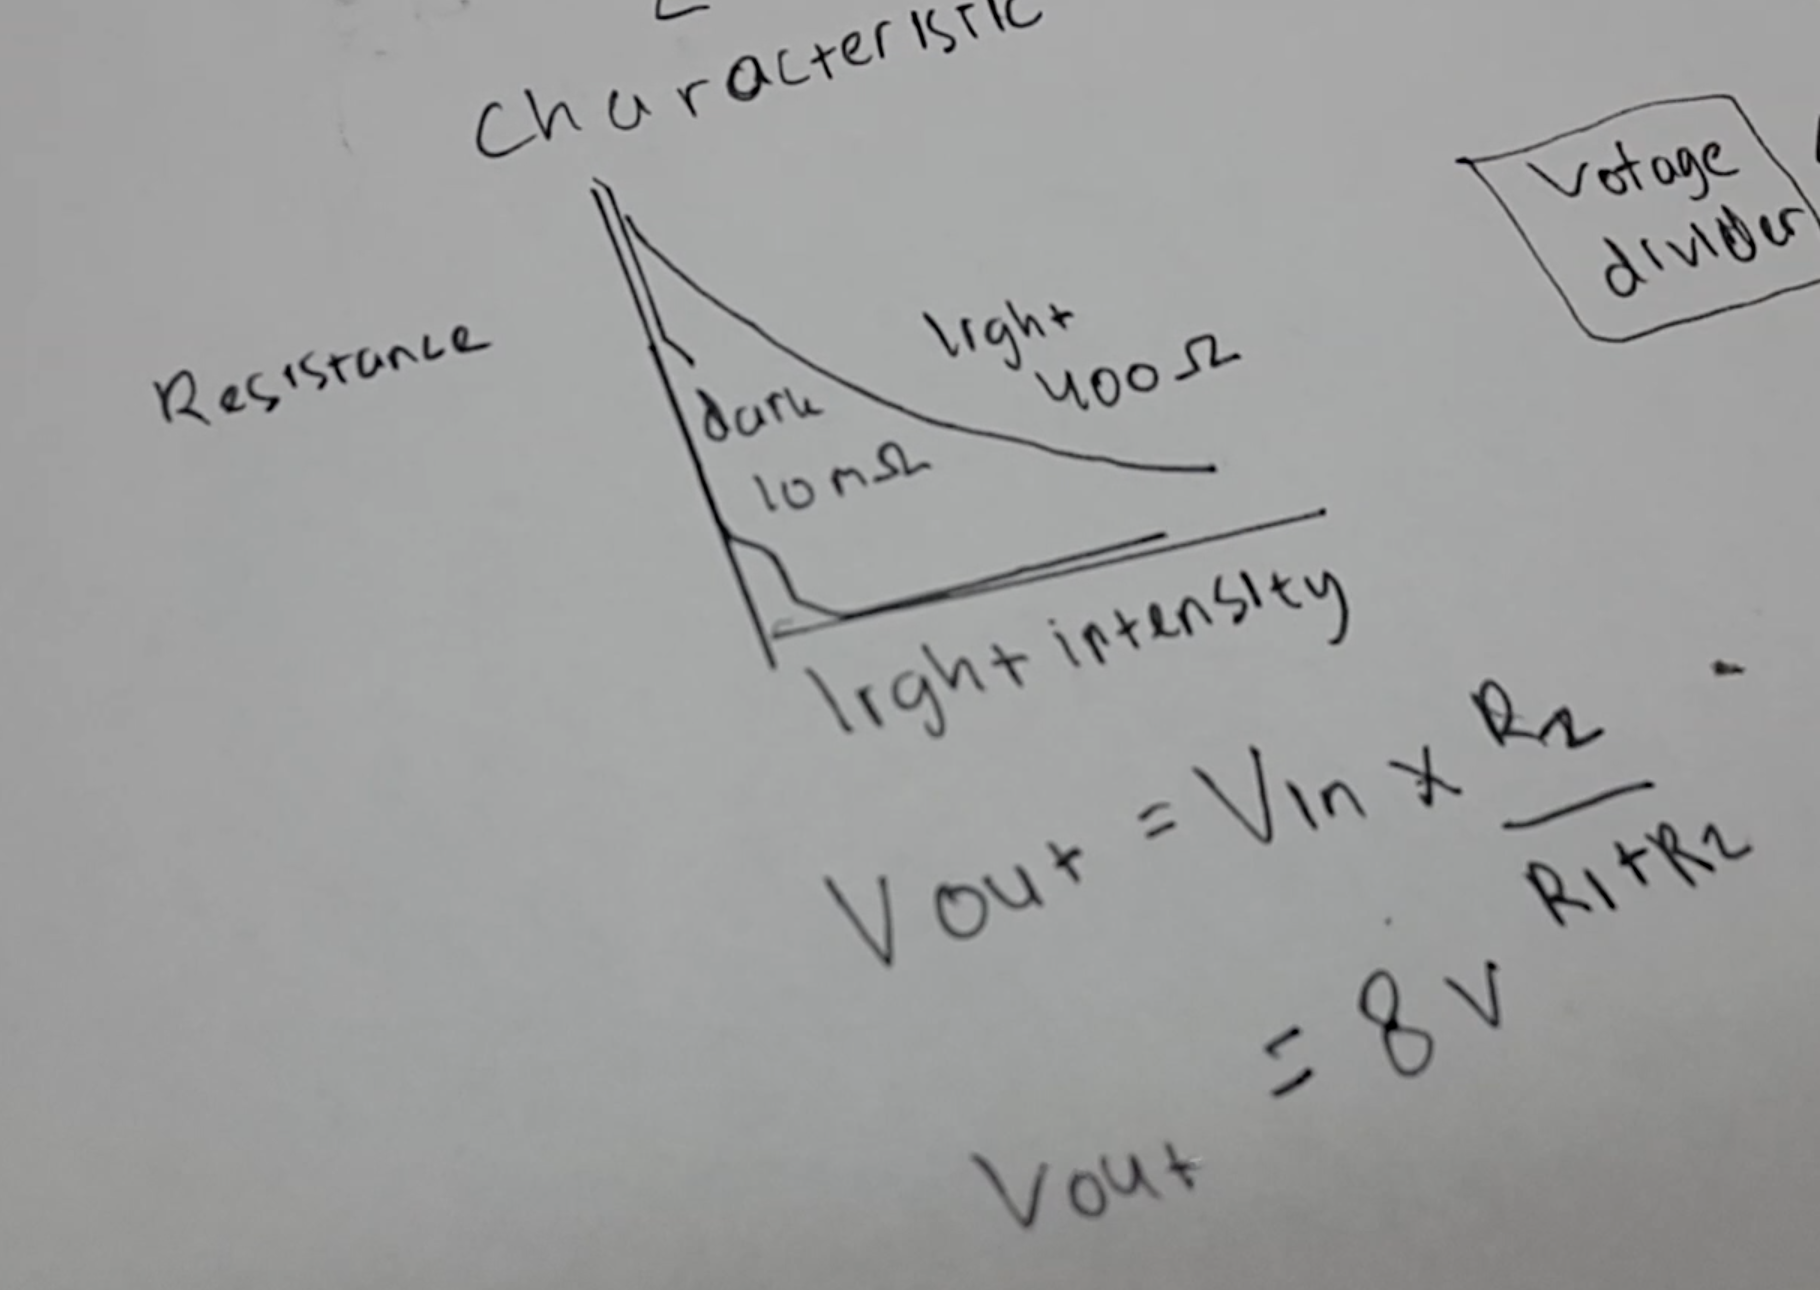 Characteristic
Votage
divider
Resistance
light
400Ω
dark
10mΩ
light intensity
Vout = Vin x R2
R1+R2
= 8V
Vout